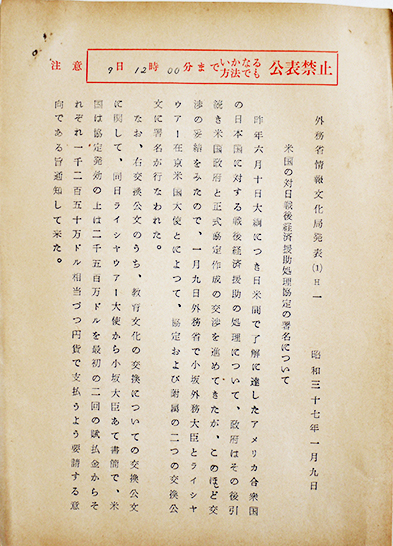 注意 9日12時00分までいかなる方法でも公表禁止
外務省情報文化局発表(1)日一 昭和三十七年一月九日
米国の対日戦後経済援助処理協定の署名について
昨年六月十日大綱につき日米間で了解に達したアメリカ合衆国
の日本国に対する戦後経済援助の処理について、政府はその後引
続き米国政府と正式協定作成の交渉を進めてきたが、このほど交
渉の妥結をみたので、一月九日外務省で小坂外務大臣とライシャ
ウアー在京米国大使とによつて、協定および附属の二つの交換公
文に署名が行なわれた。
なお、右交換公文のうち、教育文化の交換についての交換公文
に関して、同日ライシャウアー大使から小坂大臣あて書簡で、米
国は協定発効の上は二千五百万ドルを最初の二回の賦払金からそ
れぞれ一千二百五十万ドル相当づつ円貨で支払うよう要請する意
向である旨通知して来た。